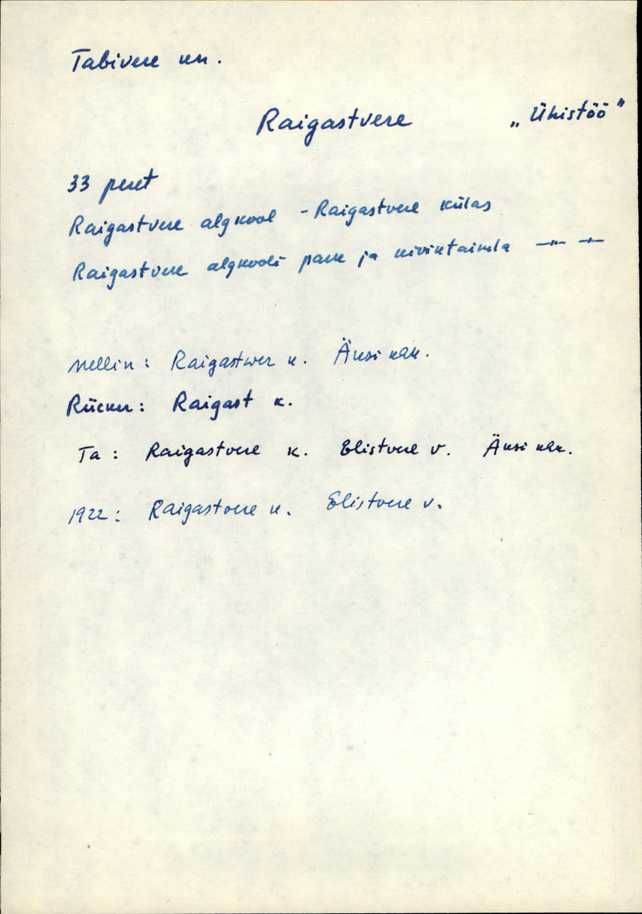 Tabivere kn.
Raigastvere „Ühistöö"
33 peret
Raigastvere algkool - Raigastvere külas
Raigastvere algkooli park ja kiviktaimla —"— —"—
Mellin: Raigastwer k. Äksi khk.
Rücker: Raigast k.
Ta: Raigastvere k. Elistvere v. Äksi khk.
1922: Raigastvere k. Elistvere v.